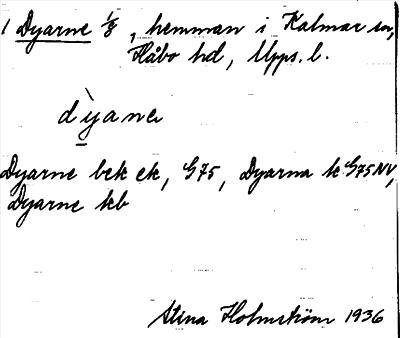 1 Dyarne 1/8, hemman i Kalmar sn,
Håbo hd, Upps. l.
dỳane
Dyarne bek ek, G75, Dyarna k G75NV,
Dyarne kb
Stina Holmström 1936